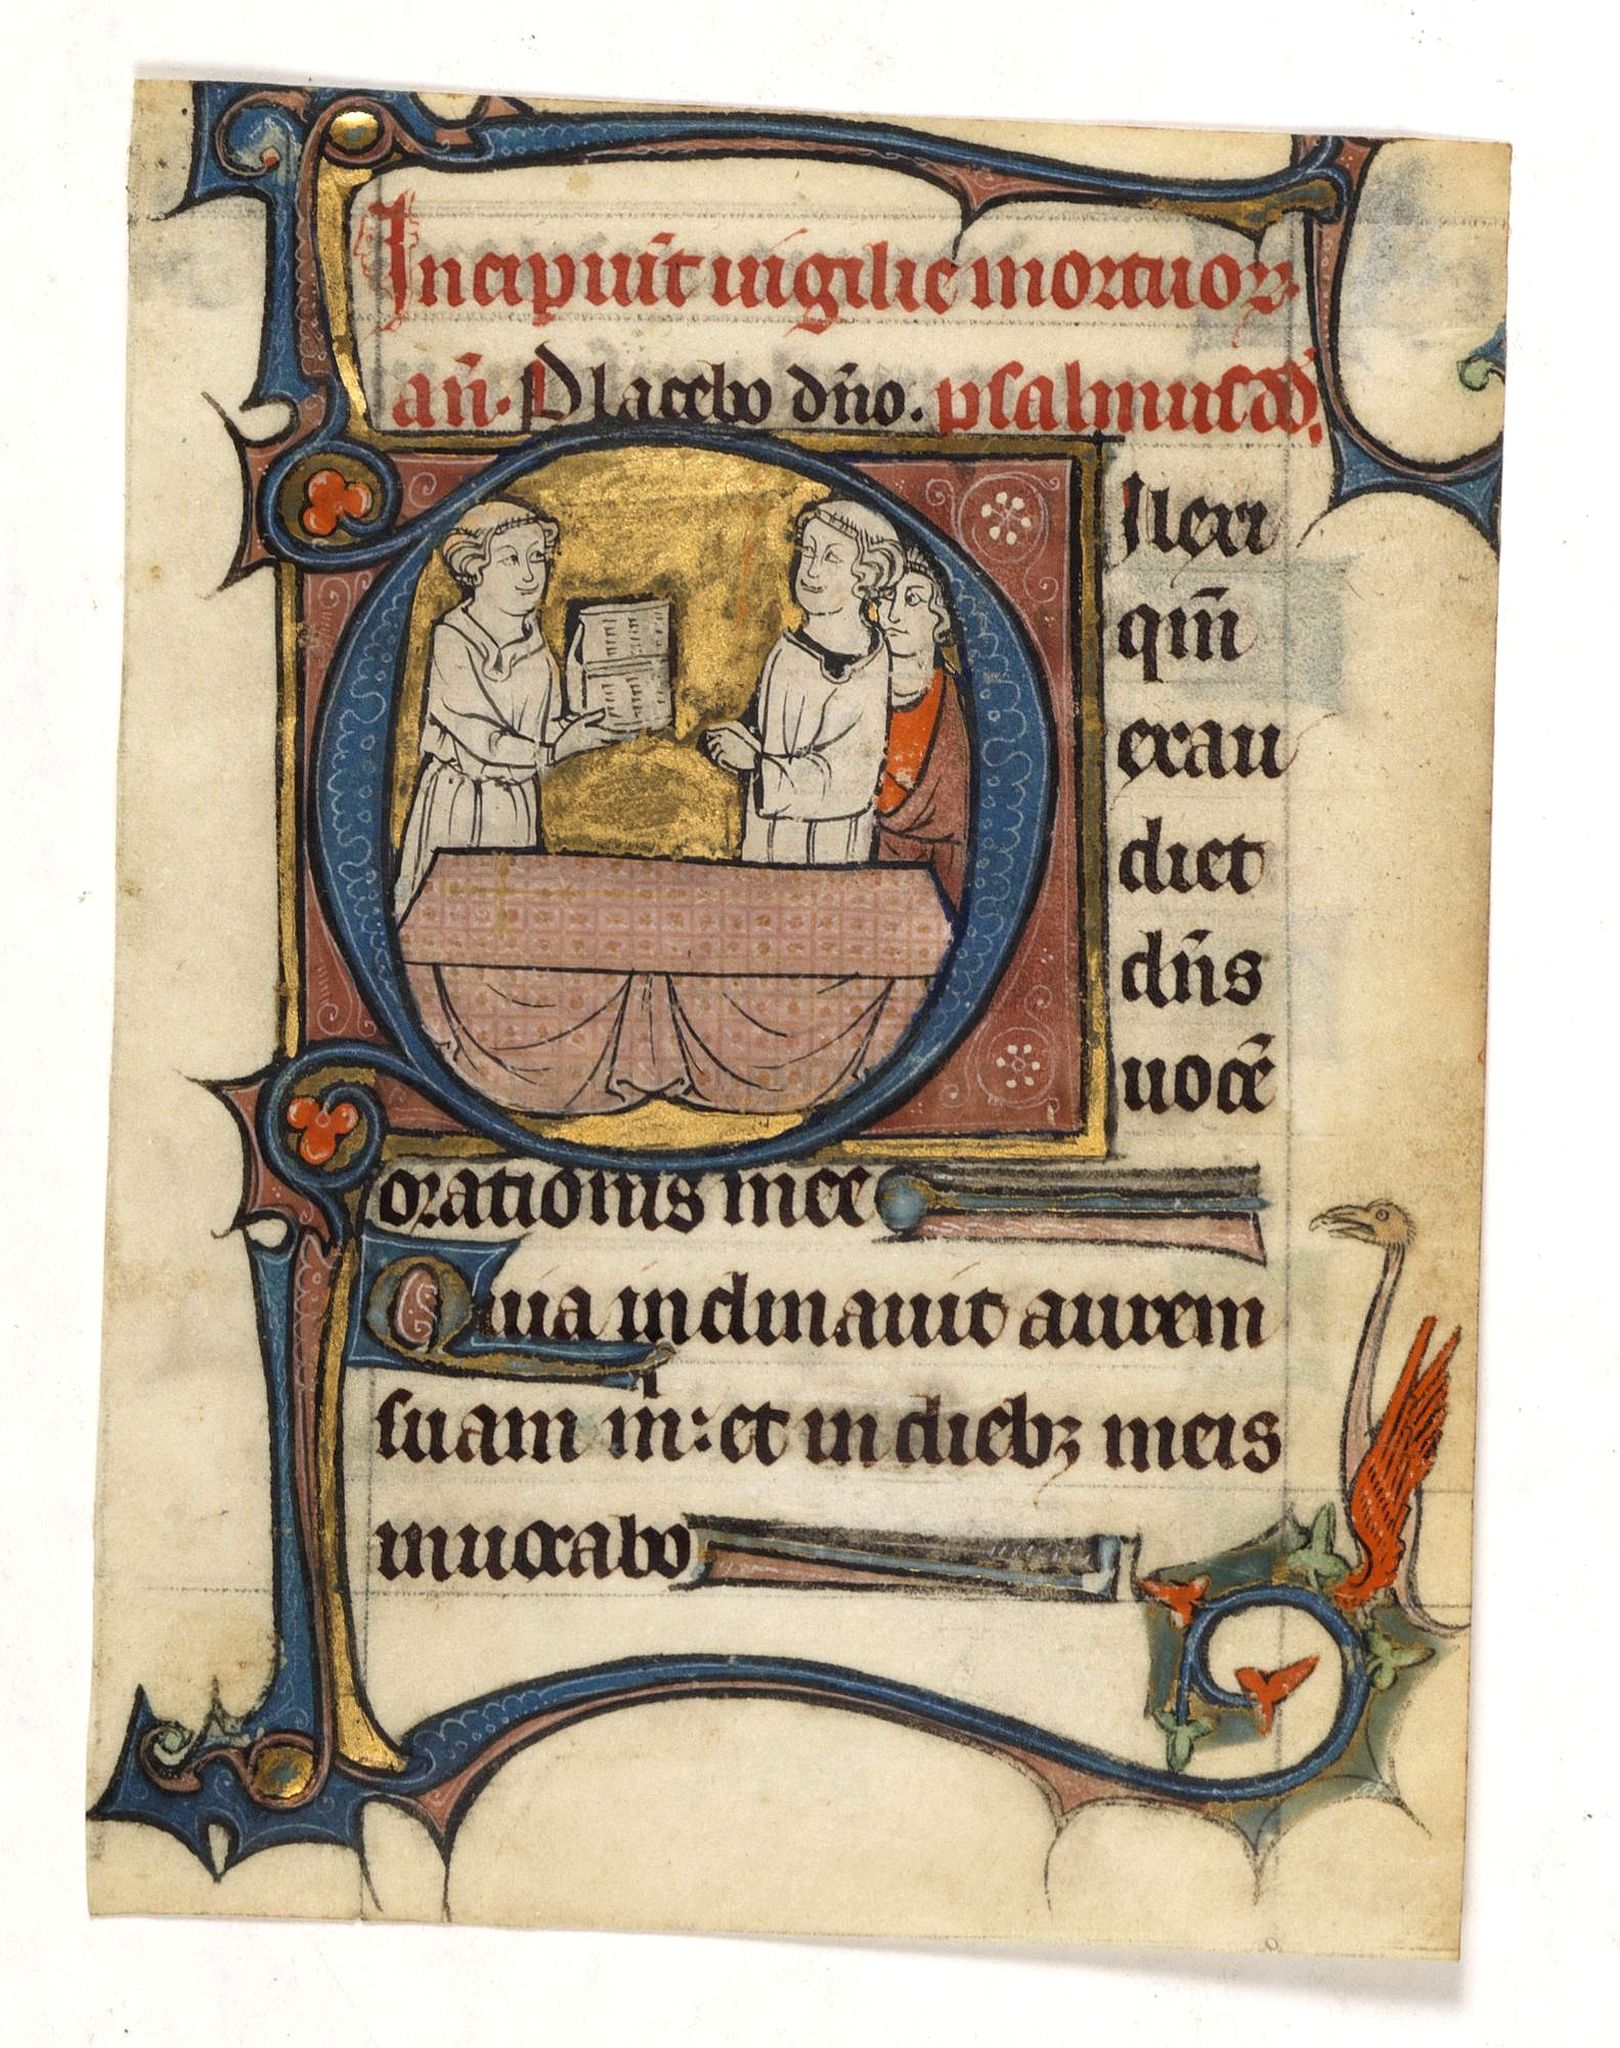 Incipiūt uigilie mortuoꝝ.
añ. Placebo dño. psalmus dd̃.
Ilexi
qm̄
exau
diet
dñs
uocē
orationis mee
Quia inclinauit aurem
suam m̄: et in diebꝫ meis
inuocabo